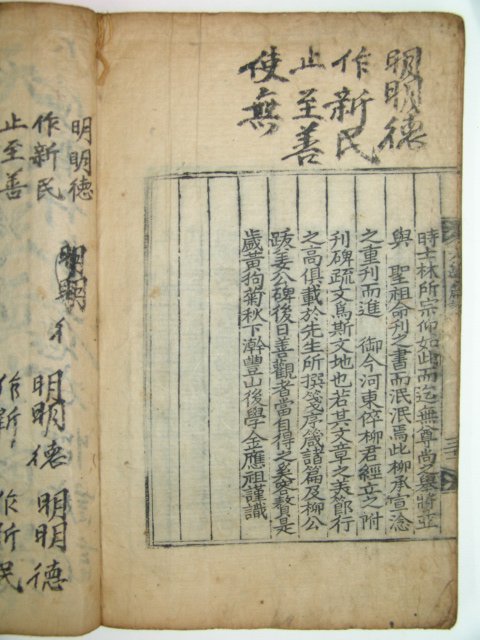 明明德
作新民
止至善
使無
時士林所宗仰如此而迄無尊尚之典將並
與　聖祖命刊之書而泯泯焉此柳承宣淰
之重刊而進　御今河東倅柳君經立之附
刊碑疏文爲斯文地也若其文章之美節行
之高俱載於先生所撰笺序箴諸篇及柳公
跋姜公碑後日善觀者當自得之奚容贅是
歲黃狗菊秋下澣豐山後學金應祖謹識
明明德
作新民
止至善
明明
明明德
明明德
作新民